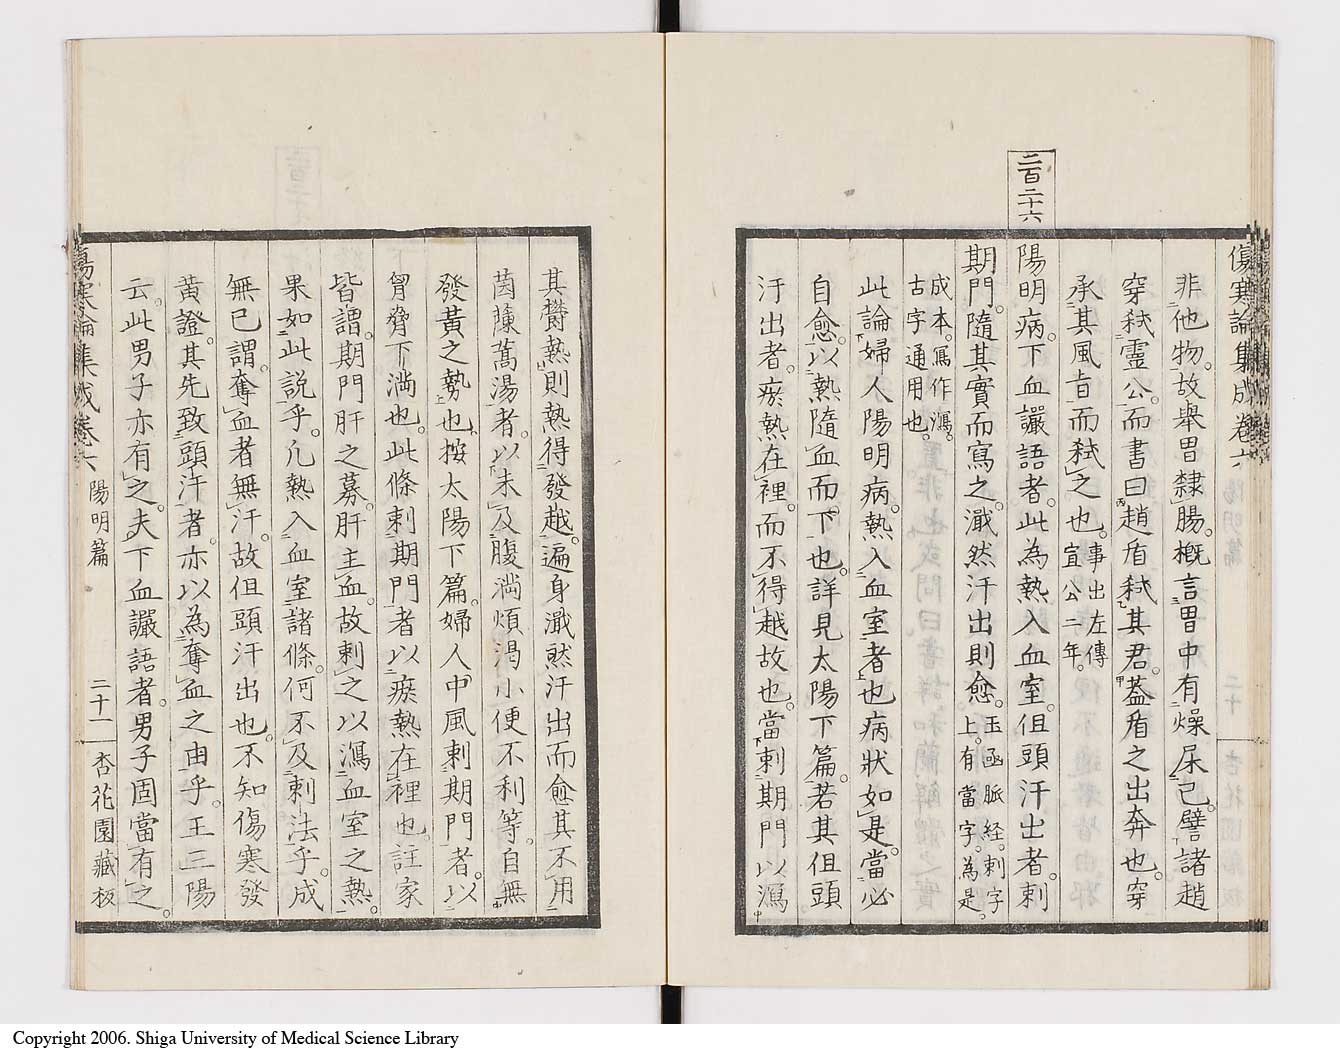 二百二十六
傷寒論集成卷六
非他物。故舉胃隸腸。概言胃中有燥屎已。譬諸趙
穿弒靈公。而書曰趙盾弒其君。蓋盾之出奔也。穿
承其風旨而弒之也。事出左傳宣公二年。
陽明病。下血讝語者。此為熱入血室。但頭汗出者。刺
期門。隨其實而寫之。濈然汗出則愈。玉函脈經。刺字上。有當字。為是。
成本。寫作瀉。古字通用也。
此論婦人陽明病。熱入血室者也病狀如是。當必
自愈。以熱隨血而下也。詳見太陽下篇。若其但頭
汗出者。瘀熱在裡。而不得越故也。當刺期門以瀉
其欝熱。則熱得發越。遍身濈然汗出而愈。其不用
茵蔯蒿湯者。以未及腹滿煩渴小便不利等。自無
發黃之勢也。按太陽下篇。婦人中風刺期門者。以
胷脅下滿也。此條刺期門者以瘀熱在裡也。註家
皆謂。期門肝之募。肝主血。故刺之以瀉血室之熱。
果如此說乎。凡熱入血室諸條。何不及刺法乎。成
無已謂。奪血者無汗。故但頭汗出也。不知傷寒發
黃證。其先致頭汗者。亦以為奪血之由乎。王三陽
云。此男子亦有之。夫下血讝語者。男子固當有之。
傷寒論集成卷六 陽明篇 二十一 杏花園藏板
Copyright 2006. Shiga University of Medical Science Library